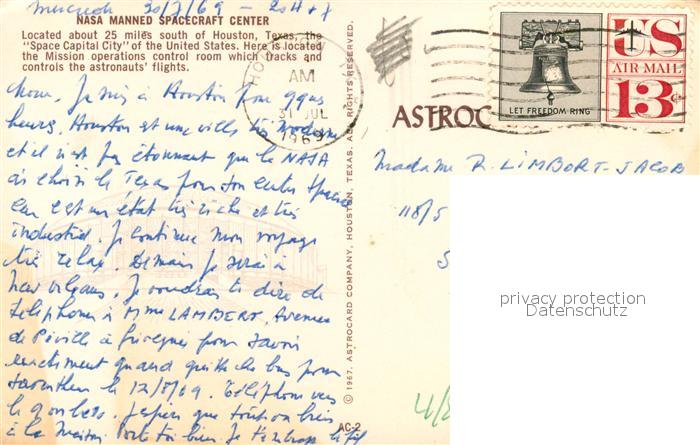 mercredi 30/7/69 - 20H+7
NASA MANNED SPACECRAFT CENTER
Located about 25 miles south of Houston, Texas, the
"Space Capital City" of the United States. Here is located
the Mission operations control room which tracks and
controls the astronauts' flights.
Je suis à Houston pour qques
heures. Houston est une ville très moderne
et il n'est pas étonnant que la NASA
ait choisi le Texas pour son centre spatial
car c'est un état très riche et très
industriel. Je continue mon voyage
très relax. Demain je serai à
New Orleans. Je voudrais te dire de
téléphoner à Mme LAMBERT, Avenue
de à pour savoir
exactement quand le bus pour
le 12/8/69. Téléphone vers
le J'espère que tout va bien
à la maison. Porte toi bien. Je t'embrasse
HOUSTON
AM
31 JUL
1969
LET FREEDOM RING
US
AIR MAIL
13c
ASTROC
Madame R. LIMBORT-JACOB
118/5
S
privacy protection
Datenschutz
© 1967, ASTROCARD COMPANY, HOUSTON, TEXAS. ALL RIGHTS RESERVED.
AC-2